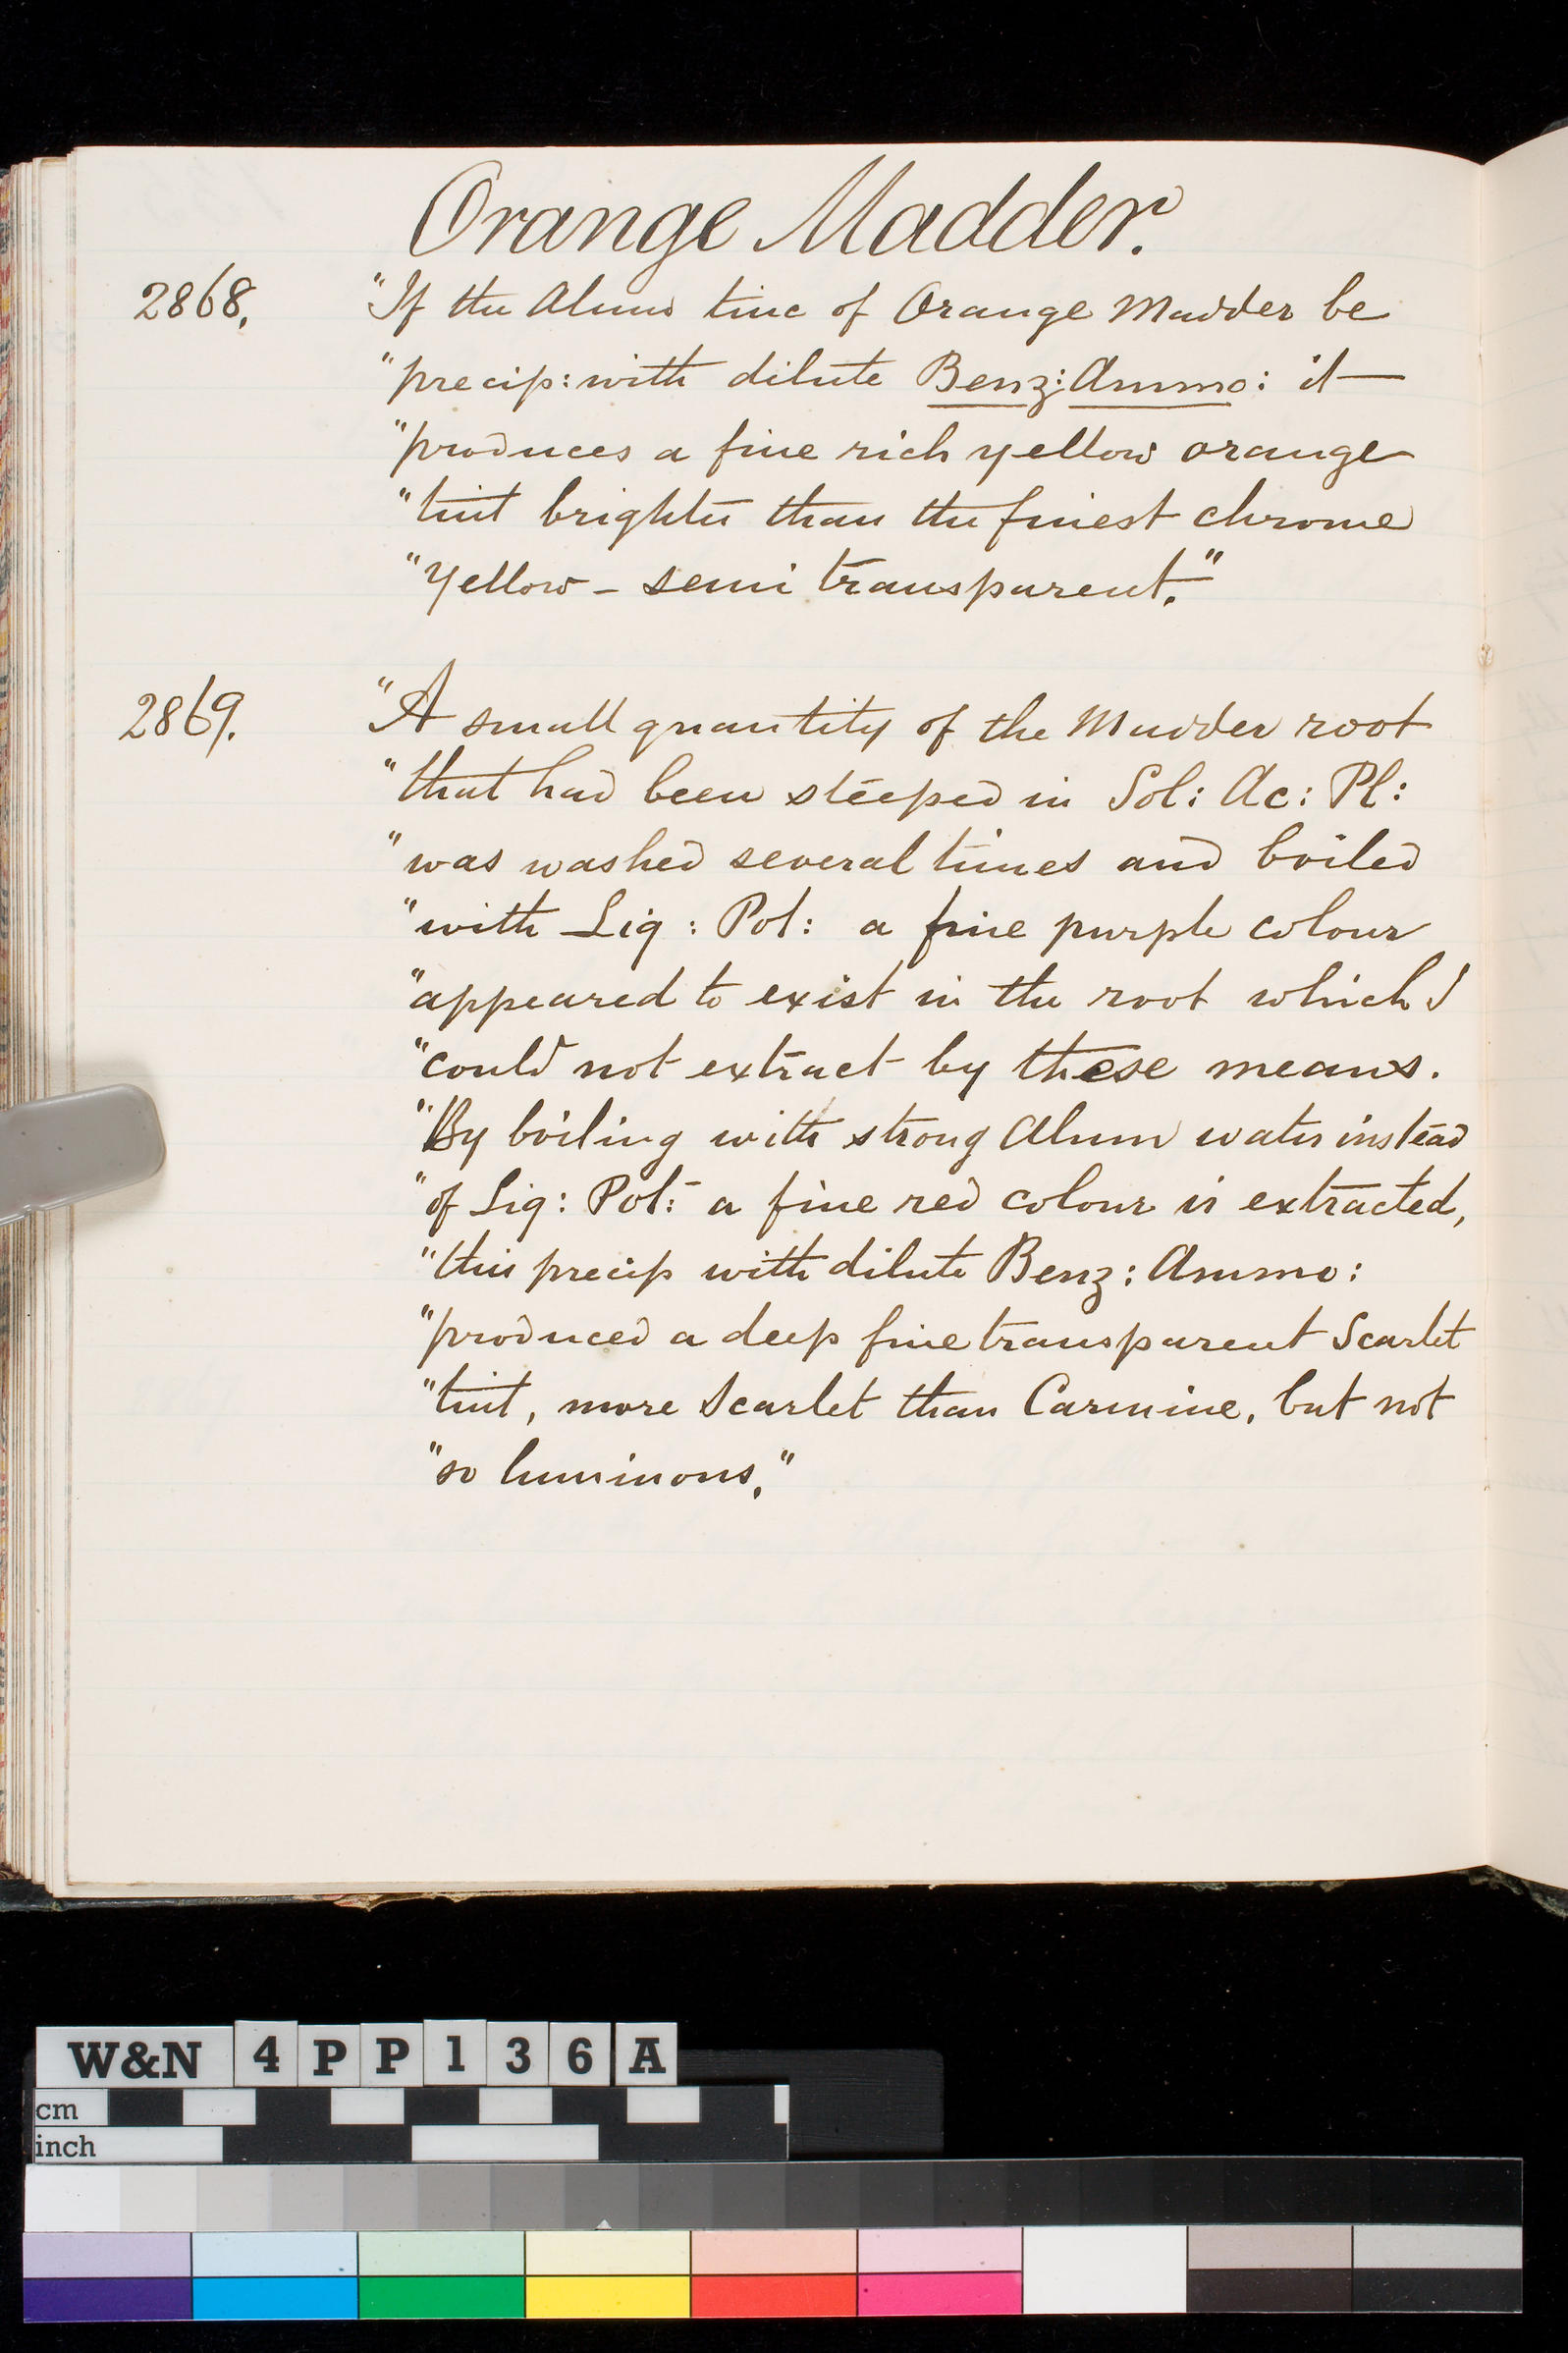 Orange Madder.
2868. "If the Alum tinc of Orange Madder be
"precip: with dilute Benz: Ammo: it
"produces a fine rich yellow orange
"tint brighter than the finest chrome
"Yellow - semi transparent."
2869. "A small quantity of the Madder root
"that had been steeped in Sol: Ac: Pl:
"was washed several times and boiled
"with Liq: Pot: a fine purple colour
"appeared to exist in the root which I
"could not extract by these means.
"By boiling with strong Alum water instead
"of Liq: Pot: a fine red colour is extracted,
"this precip with dilute Benz: Ammo:
"produced a deep fine transparent Scarlet
"tint, more Scarlet than Carmine, but not
"so luminous."
W&N 4PP136A
cm
inch